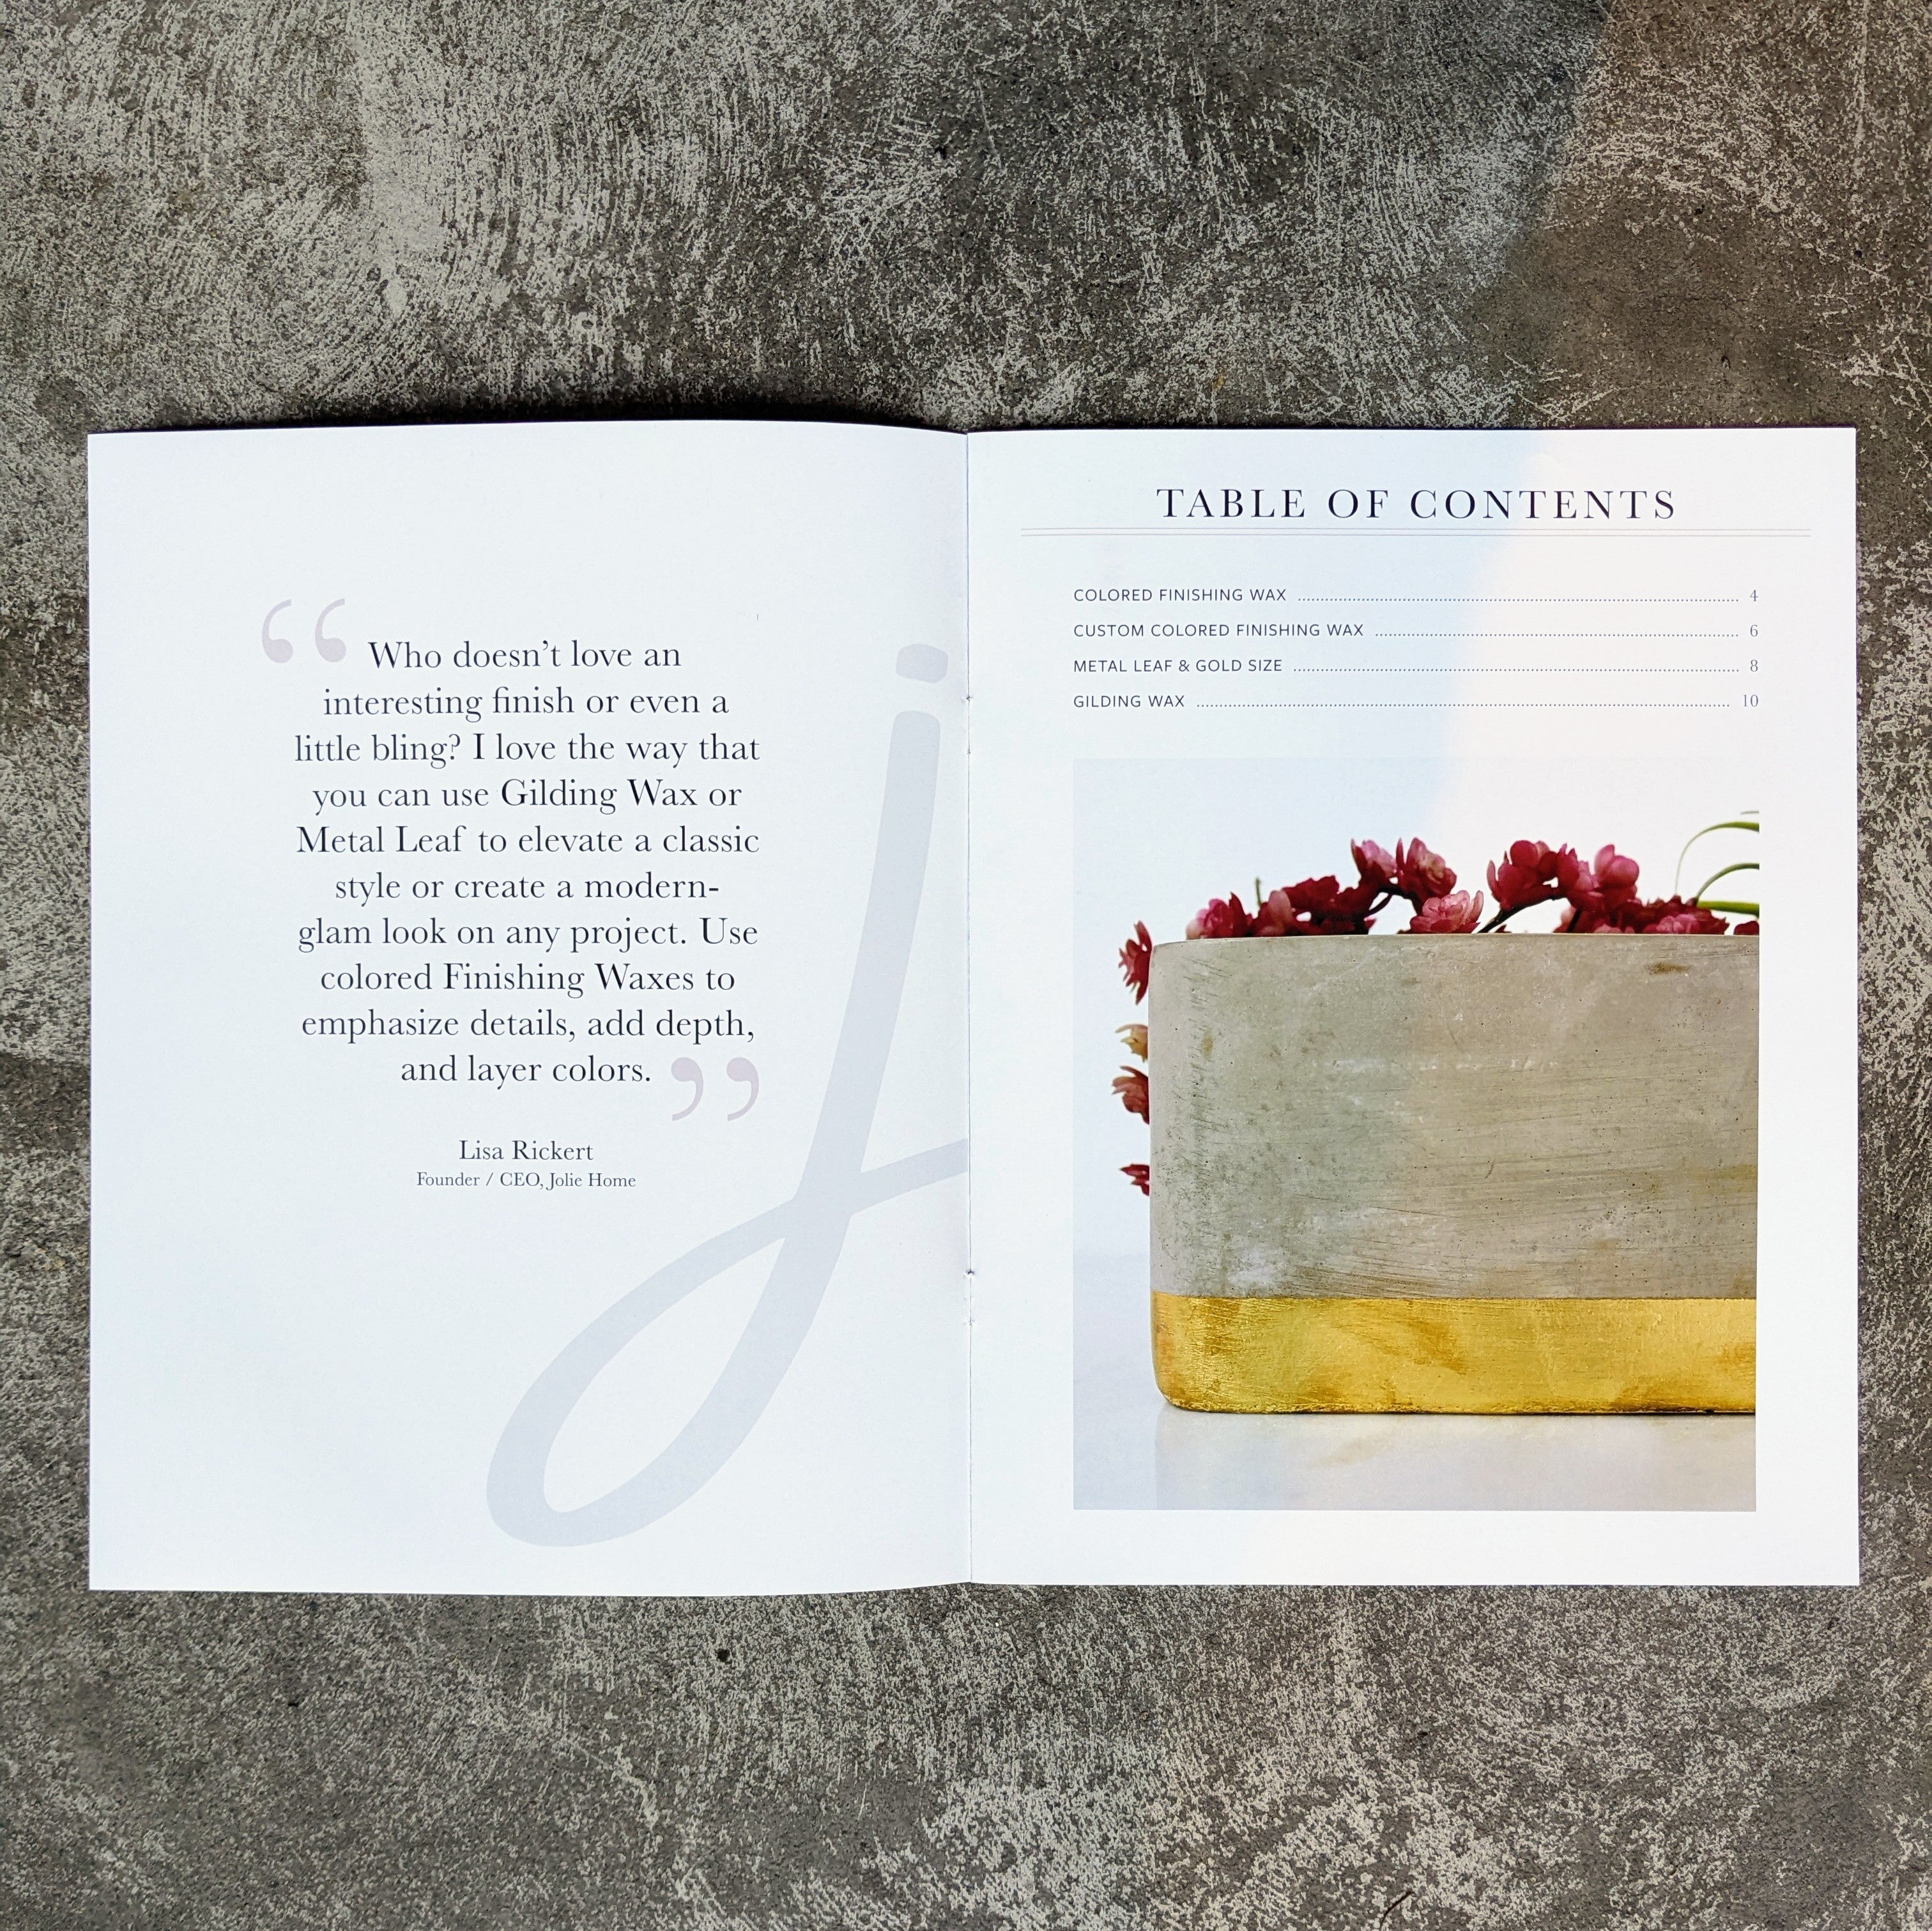 “Who doesn’t love an
interesting finish or even a
little bling? I love the way that
you can use Gilding Wax or
Metal Leaf to elevate a classic
style or create a modern-
glam look on any project. Use
colored Finishing Waxes to
emphasize details, add depth,
and layer colors.”
Lisa Rickert
Founder / CEO, Jolie Home
j
TABLE OF CONTENTS
COLORED FINISHING WAX 4
CUSTOM COLORED FINISHING WAX 6
METAL LEAF & GOLD SIZE 8
GILDING WAX 10